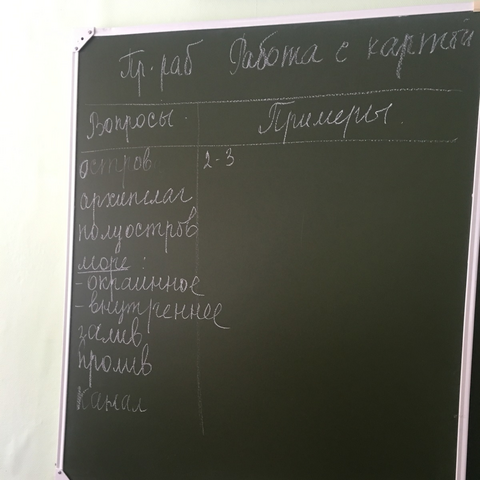 Пр. раб Работа с картой
Вопросы. Примеры.
остров 2-3
архипелаг
полуостров
море:
- окраинное
- внутреннее
залив
пролив
канал